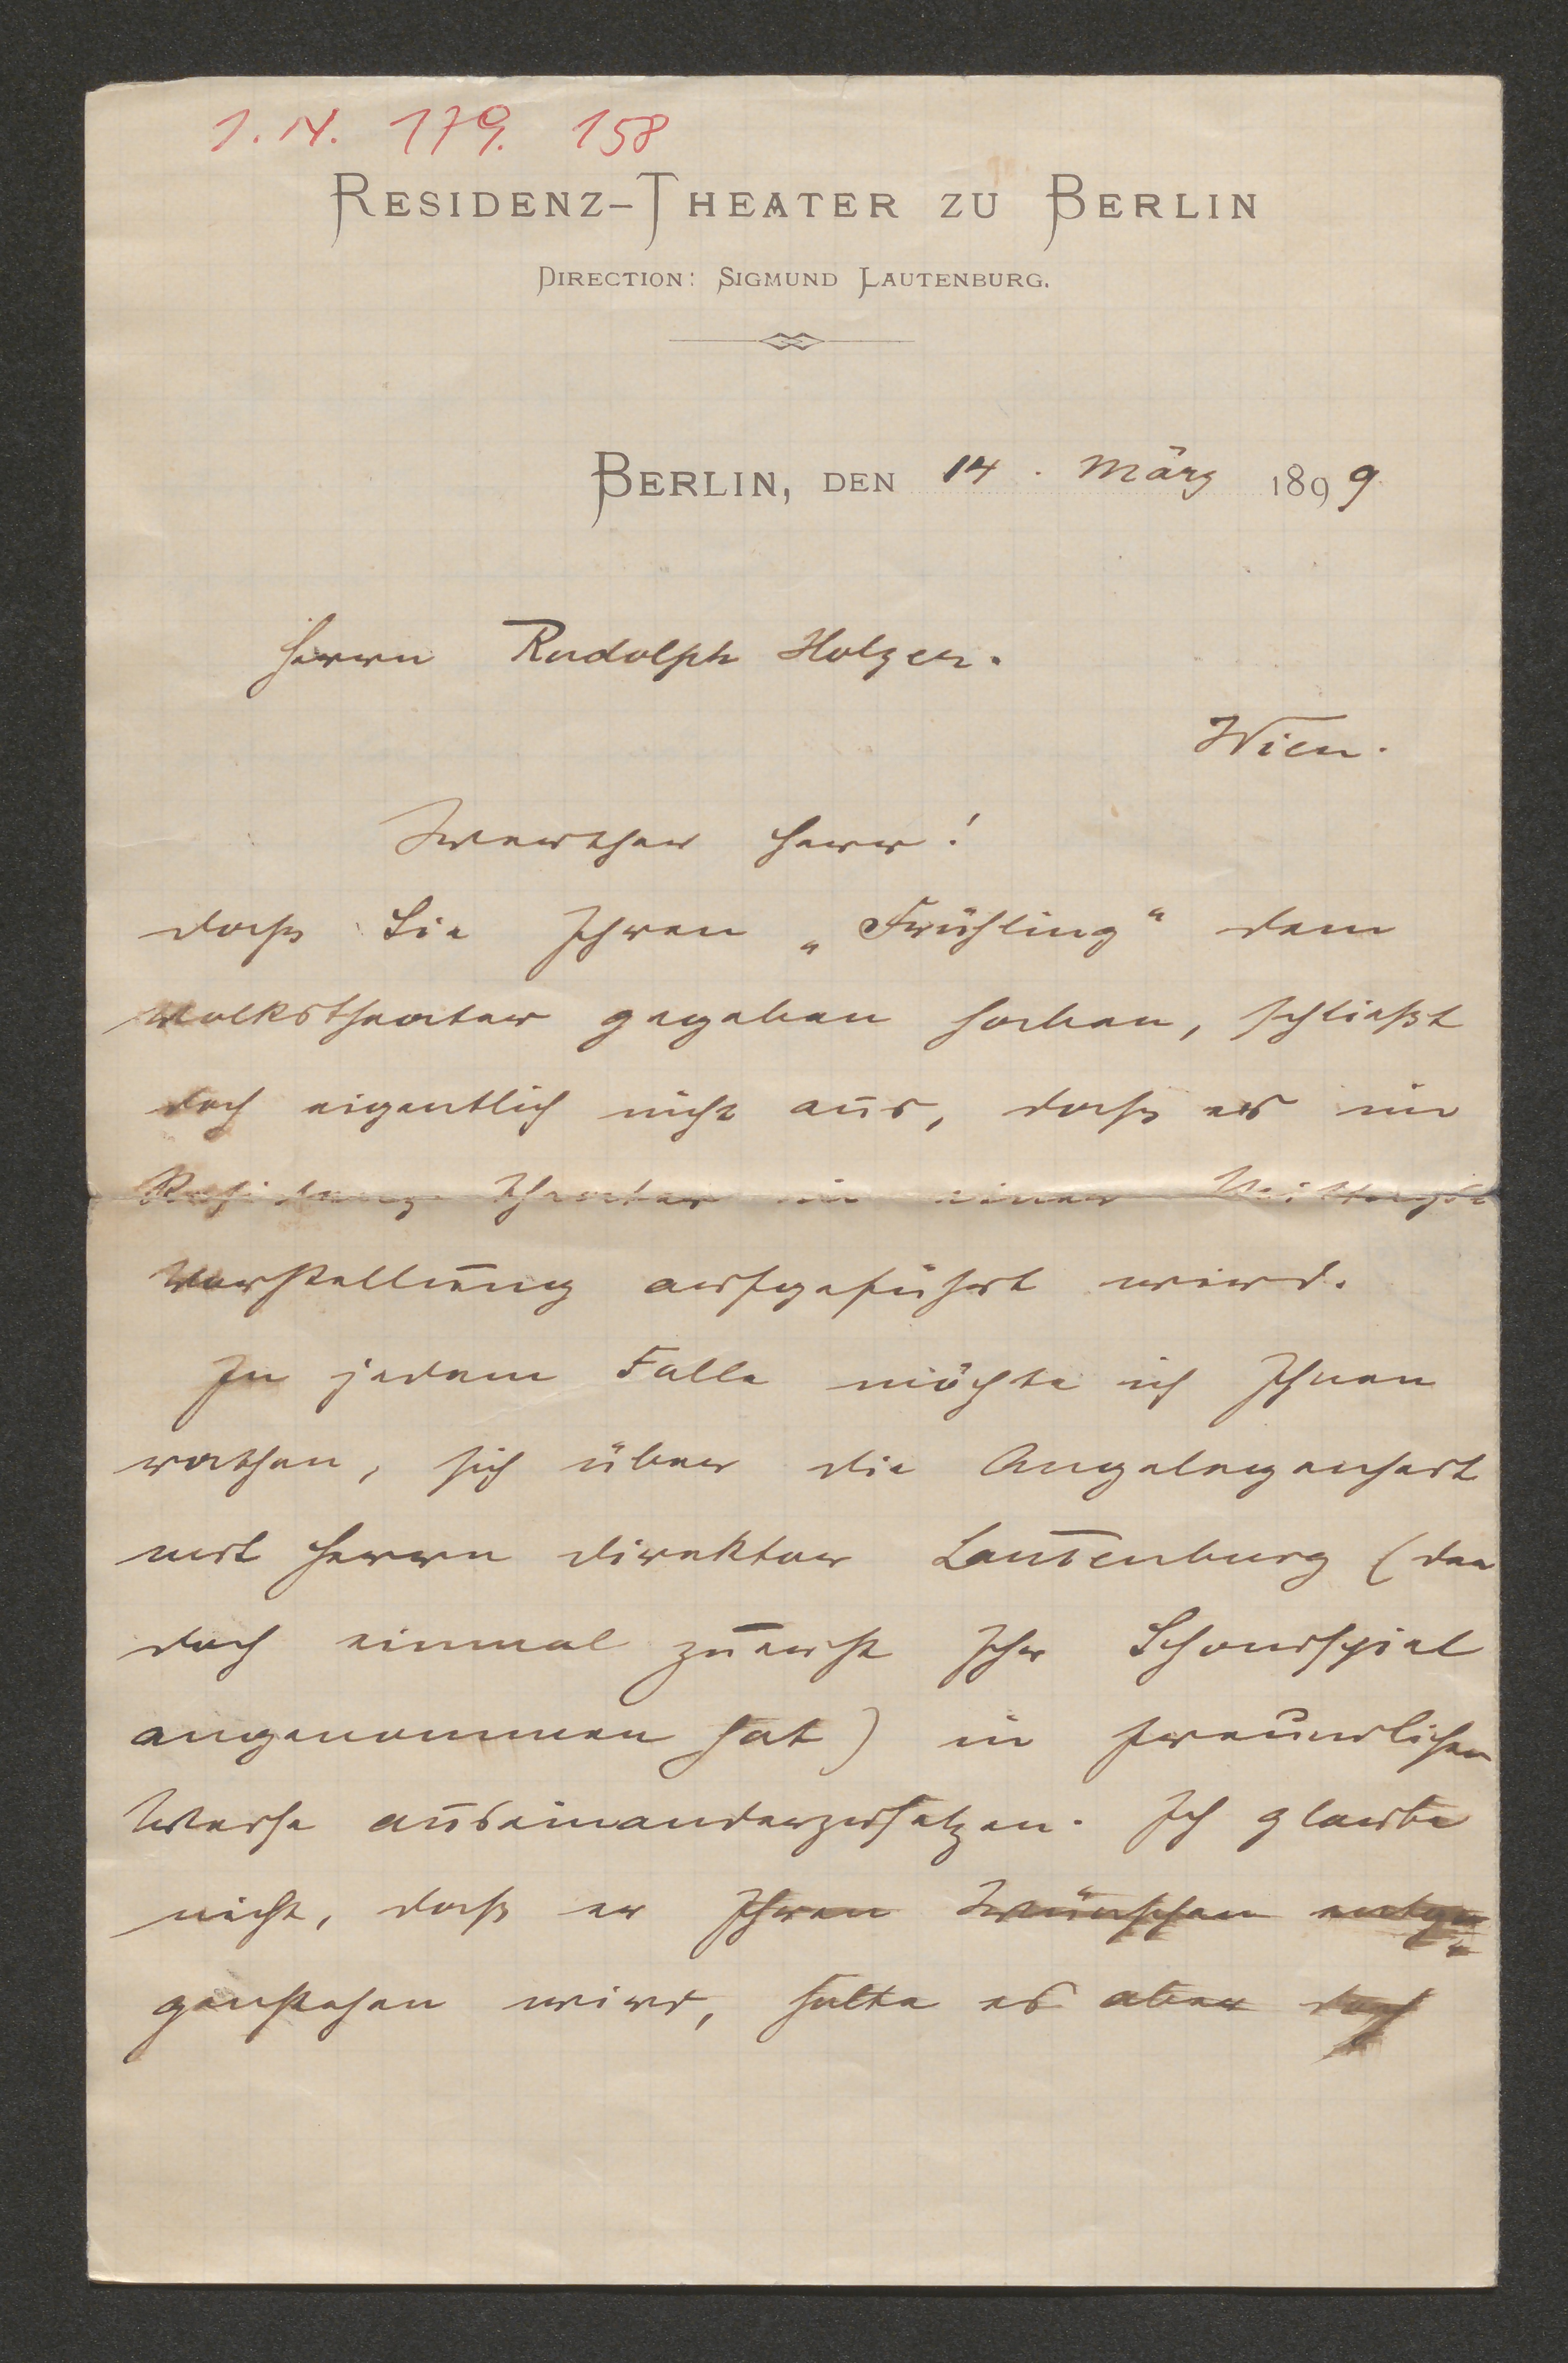 I.N. 179.158
RESIDENZ-THEATER ZU BERLIN
DIRECTION: SIGMUND LAUTENBURG.
BERLIN, DEN 14. März 1899
Herrn Rudolph Holzer.
Wien.
Werther Herr!
daß Sie Ihren „Frühling“ dem
Volkstheater gegeben haben, schließt
doch eigentlich nicht aus, daß er im
Residenz-Theater in einer Mittags-
Vorstellung aufgeführt wird.
In jedem Falle möchte ich Ihnen
rathen, sich über die Angelegenheit
mit Herrn Direktor Lautenburg (der
doch einmal zuerst Ihr Schauspiel
angenommen hat) in freundlicher
Weise auseinanderzusetzen. Ich glaube
nicht, daß er Ihren Wünschen entge-
genstehen wird, halte es aber doch